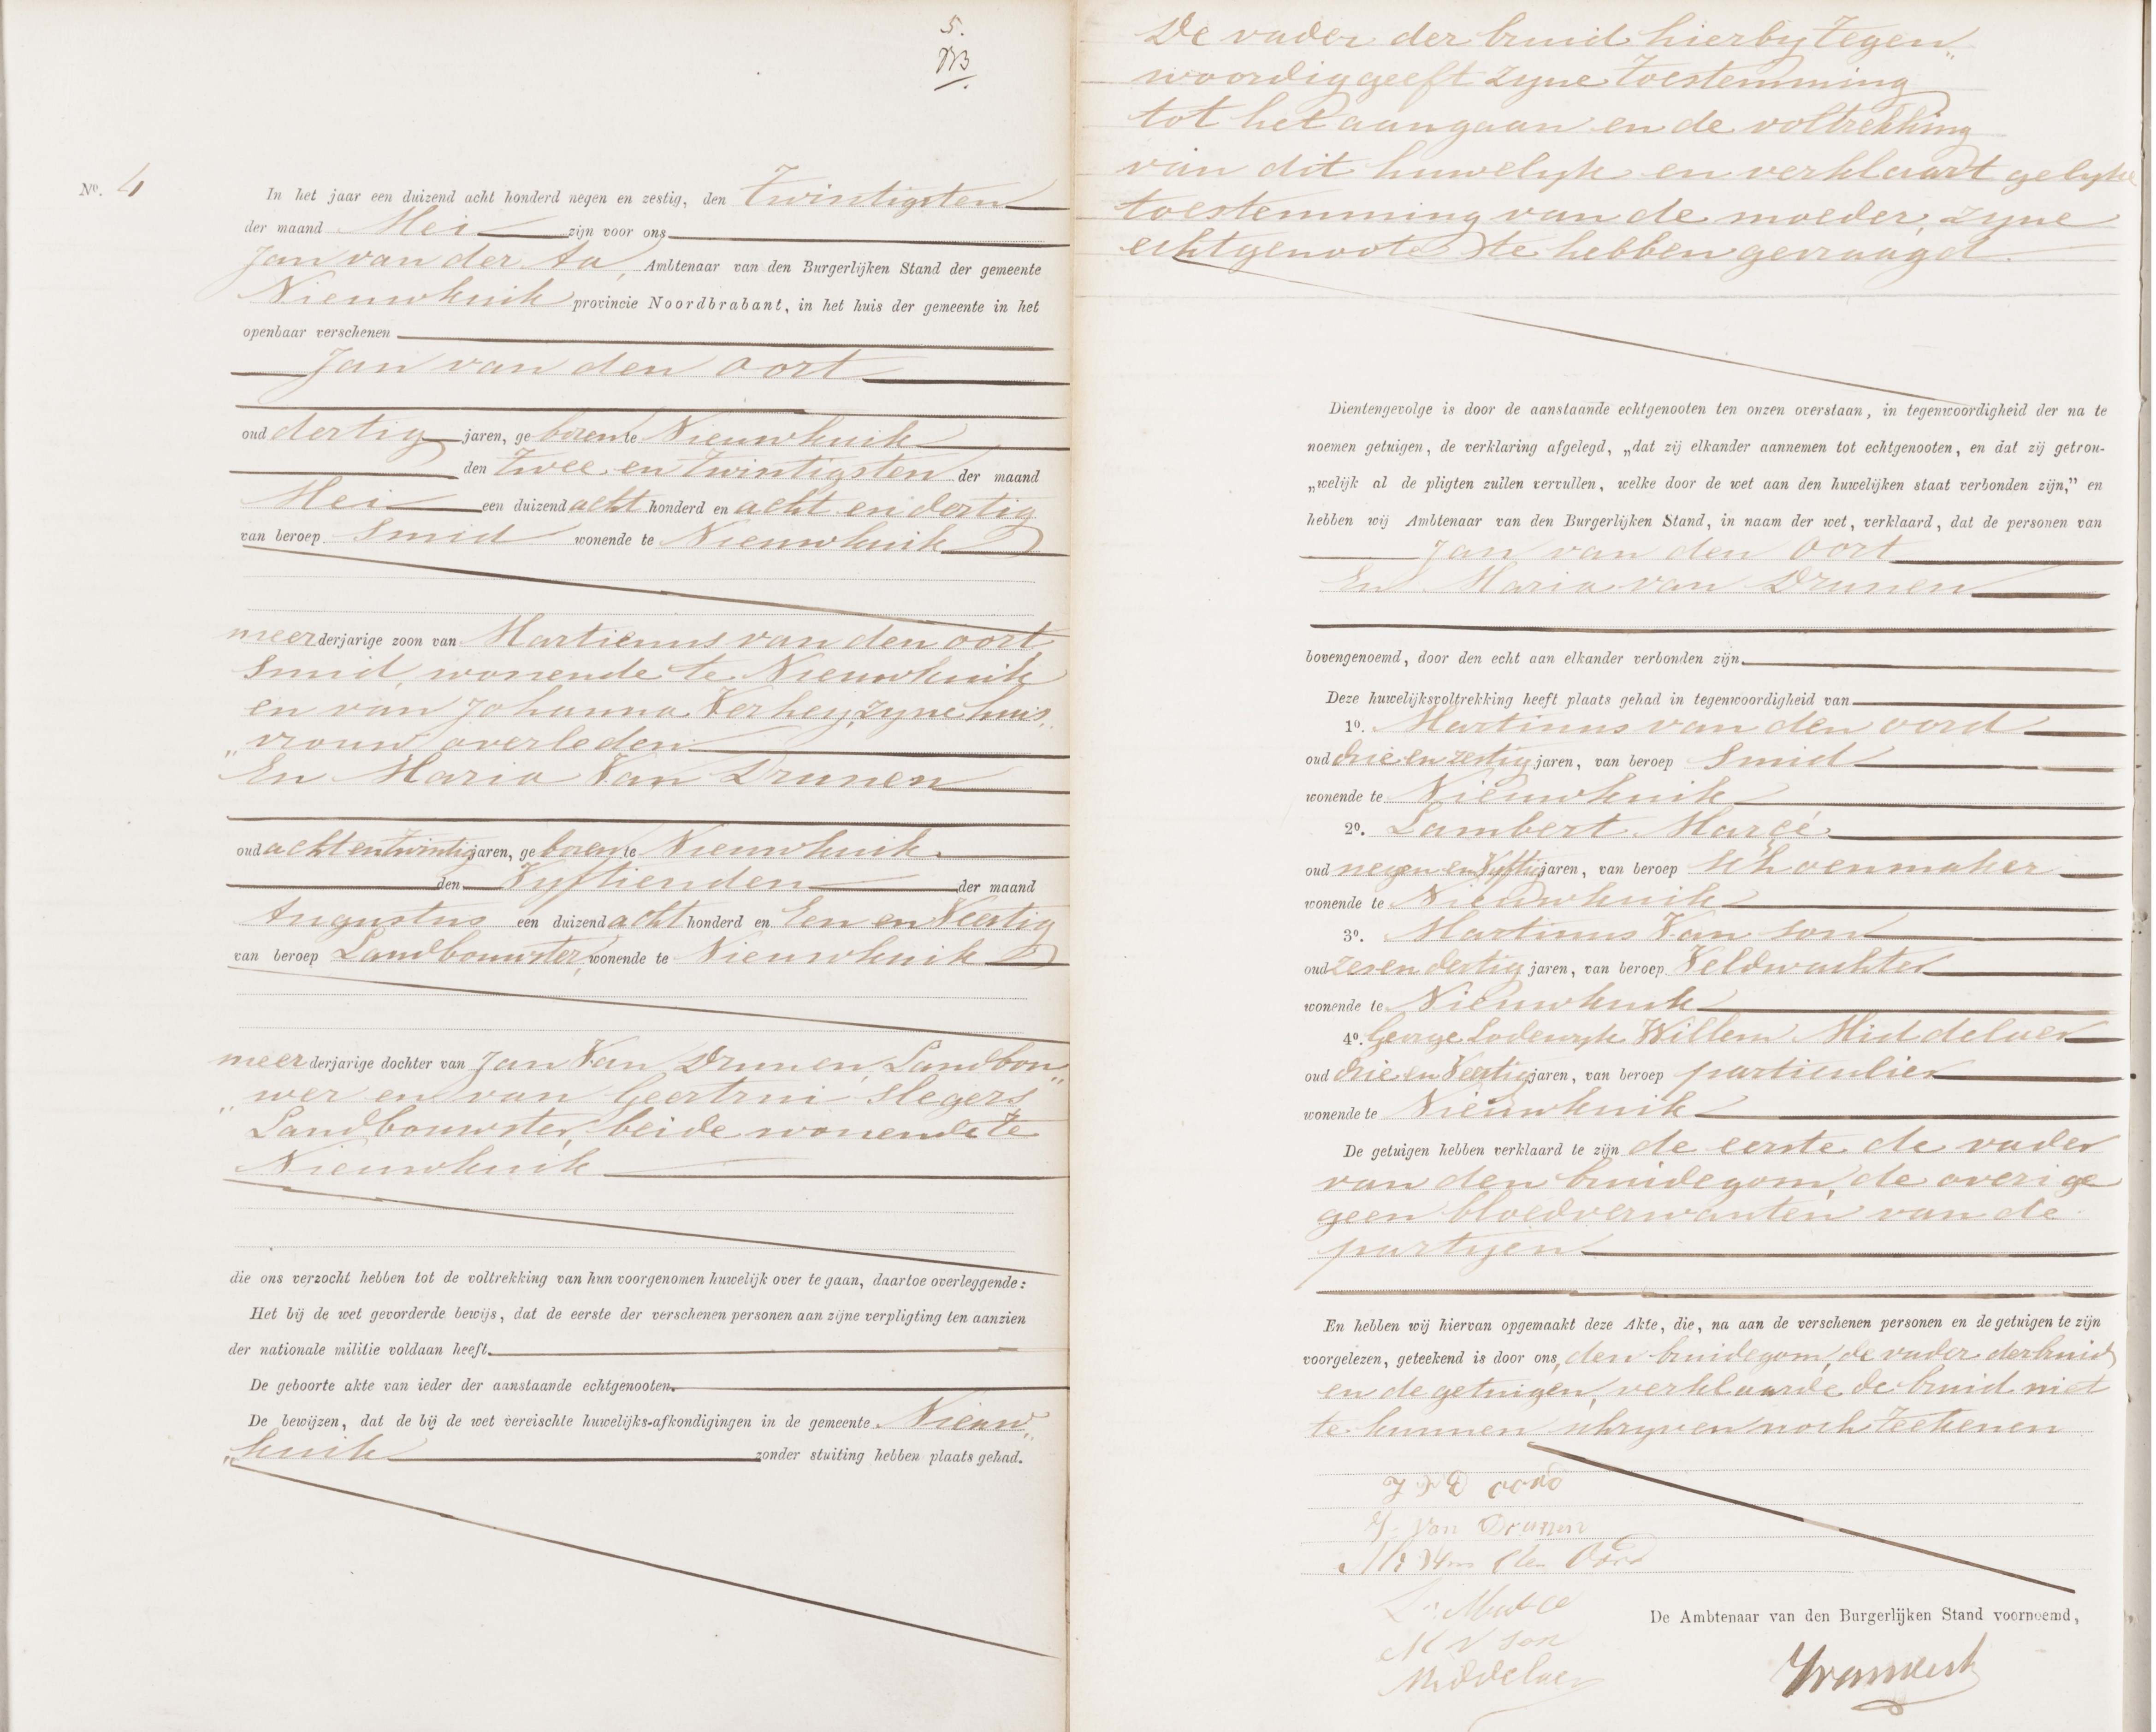 5.
No. 4
In het jaar een duizend acht honderd negen en zestig, den Twintigsten
der maand Mei zijn voor ons
Jan van der Aa, Ambtenaar van den Burgerlijken Stand der gemeente
Nieuwkuik provincie Noordbrabant, in het huis der gemeente in het
openbaar verschenen
Jan van den Oort
oud dertig jaren, geboren te Nieuwkuik
den twee en twintigsten der maand
Mei een duizend acht honderd en acht en dertig
van beroep Smid wonende te Nieuwkuik
meerderjarige zoon van Martienus van den oort
Smid, wonende te Nieuwkuik
en van Johanna Verhey, zyne huis„
„vrouw overleden
En Maria Van Drunen
oud acht en twintig jaren, geboren te Nieuwkuik
den Vyftienden der maand
Augustus een duizend acht honderd en Een en Veertig
van beroep Landbouwster, wonende te Nieuwkuik
meerderjarige dochter van Jan Van Drunen, Landbou„
„wer en van Geertrui Slegers
Landbouwster, beide wonende te
Nieuwkuik
die ons verzocht hebben tot de voltrekking van hun voorgenomen huwelijk over te gaan, daartoe overleggende:
Het bij de wet gevorderde bewijs, dat de eerste der verschenen personen aan zijne verpligting ten aanzien
der nationale militie voldaan heeft.
De geboorte akte van ieder der aanstaande echtgenooten.
De bewijzen, dat de bij de wet vereischte huwelijks-afkondigingen in de gemeente Nieuw„
„kuik zonder stuiting hebben plaats gehad.
De vader der bruid hierby tegen„
woordig geeft zyne toestemming
tot het aangaan en de voltrekking
van dit huwelyk en verklaart gelyke
toestemming van de moeder, zyne
echtgenoote te hebben gevraagd.
Dientengevolge is door de aanstaande echtgenooten ten onzen overstaan, in tegenwoordigheid der na te
noemen getuigen, de verklaring afgelegd, „dat zij elkander aannemen tot echtgenooten, en dat zij getrou-
„welijk al de pligten zullen vervullen, welke door de wet aan den huwelijken staat verbonden zijn,” en
hebben wij Ambtenaar van den Burgerlijken Stand, in naam der wet, verklaard, dat de personen van
Jan van den Oort
En Maria van Drunen
bovengenoemd, door den echt aan elkander verbonden zijn.
Deze huwelijksvoltrekking heeft plaats gehad in tegenwoordigheid van
1o. Martinus van den oord
oud drie en zestig jaren, van beroep Smid
wonende te Nieuwkuik
2o. Lambert Marçé
oud negen en Vyftig jaren, van beroep Schoenmaker
wonende te Nieuwkuik
3o. Martinus Van Son
oud zes en dertig jaren, van beroep Veldwachter
wonende te Nieuwkuik
4o. George Lodewyk Willem Middelaer
oud drie en Veertig jaren, van beroep particulier
wonende te Nieuwkuik
De getuigen hebben verklaard te zijn de eerste de vader
van den bruidegom, de overige
geen bloedverwanten van de
partyen
En hebben wij hiervan opgemaakt deze Akte, die, na aan de verschenen personen en de getuigen te zijn
voorgelezen, geteekend is door ons, den bruidegom, de vader der bruid
en de getuigen, verklaarde de bruid niet
te kunnen schryven noch teekenen
J V D oord
J. van Drunen
M Van den Oord
L. Marce
M V Son
Middelaer
De Ambtenaar van den Burgerlijken Stand voornoemd,